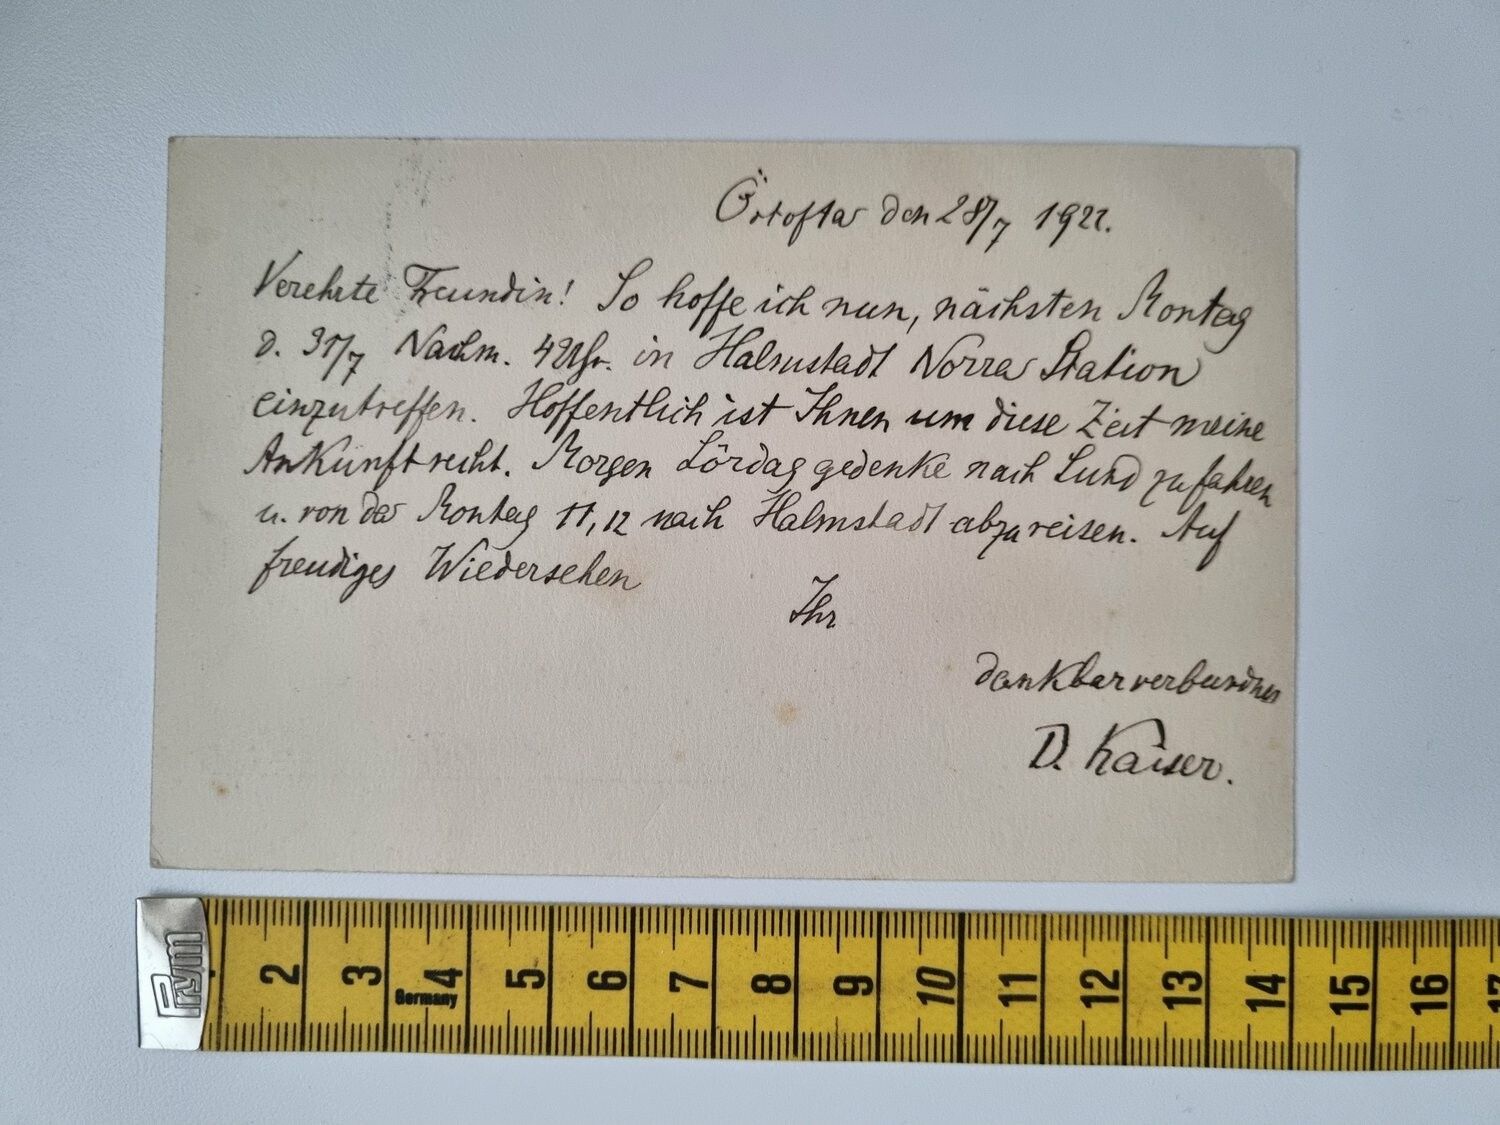 Örtofta den 28/7 1922.
Verehrte Freundin! So hoffe ich nun, nächsten Montag
d. 31/7 Nachm. 4 Uhr. in Halmstadt Norra Station
einzutreffen. Hoffentlich ist Ihnen um diese Zeit meine
Ankunft recht. Morgen Lördag gedenke nach Lund zu fahren
u. von da Montag 11,12 nach Halmstadt abzureisen. Auf
freudiges Wiedersehen
Ihr
dankbar verbundner
D. Kaiser.
Prym
2 3 4 5 6 7 8 9 10 11 12 13 14 15 16 17
Germany